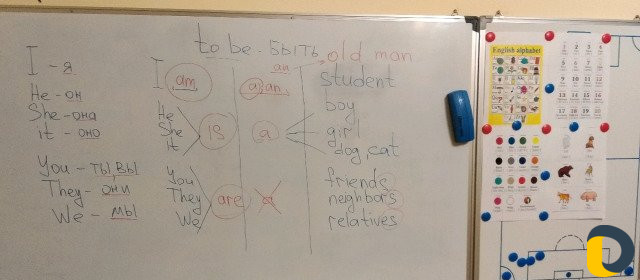 to be - быть
I - я
He - он
She - она
it - оно
You - ты, вы
They - они
We - мы
I am
He
She is
it
You
They are
We
an old man
a, an student
boy
a girl
dog, cat
a friends
neighbors
relatives
English alphabet